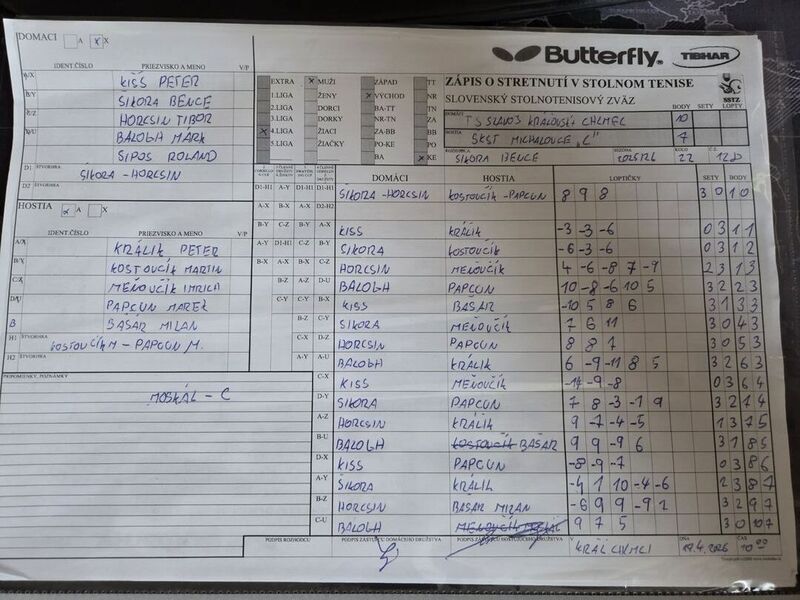 DOMACI A x X
IDENT.ČÍSLO PRIEZVISKO A MENO V/P
A/X KIŠŠ PETER
B/Y SIKORA BENCE
HORCSIN TIBOR
BALOGH MÁRK
SIPOS ROLAND
D1 ŠTVORHRA SIKORA - HORCSIN
D2 ŠTVORHRA
HOSTIA A X
IDENT.ČÍSLO PRIEZVISKO A MENO V/P
A/X KRÁLIK PETER
B/Y KOSTOVČÍK MARTIN
C/Z MEŇOVČÍK IMRICH
D/U PAPCUN MAREK
B BAŠÁR MILAN
H1 ŠTVORHRA KOSTOVČÍK M - PAPCUN M.
H2 ŠTVORHRA
PRIPOMIENKY, POZNÁMKY
MOSKÁL - C
Butterfly TIBHAR
EXTRA x MUŽI ZÁPAD TT
1.LIGA ŽENY x VÝCHOD NR
2.LIGA DORCI BA-TT TN
3.LIGA DORKY NR-TN ZA
x 4.LIGA ŽIACI ZA-BB BB
5.LIGA ŽIAČKY PO-KE PO
BA x KE
ZÁPIS O STRETNUTÍ V STOLNOM TENISE
SLOVENSKÝ STOLNOTENISOVÝ ZVÄZ
SSTZ
BODY SETY
DOMÁCI TJ SLAVOJ KRÁĽOVSKÝ CHLMEC 10
HOSTIA ŠKST MICHALOVCE "C" 7
SIKORA BENCE 2025/26 KOLO 22 Č.Z.
DOMÁCI HOSTIA LOPTIČKY SETY BODY
D1-H1 SIKORA - HORCSIN KOSTOVČÍK - PAPCUN 8 9 8 3 0 1 0
D2-H2
A-X KISS KRÁLIK -3 -3 -6 0 3 1 1
B-Y SIKORA KOSTOVČÍK -6 -3 -6 0 3 1 2
C-Z HORCSIN MEŇOVČÍK 4 -6 -8 7 -9 2 3 1 3
D-U BALOGH PAPCUN 10 -8 -6 10 5 3 2 2 3
B-X KISS BAŠÁR -10 5 8 6 3 1 3 3
SIKORA MEŇOVČÍK 7 6 11 3 0 4 3
D-Z HORCSIN PAPCUN 8 8 7 3 0 5 3
A-U BALOGH KRÁLIK 6 -9 -11 8 5 3 2 6 3
C-X KISS MEŇOVČÍK -14 -9 -8 0 3 6 4
D-Y SIKORA PAPCUN 7 8 -3 -19 9 3 2 7 4
A-Z HORCSIN KRÁLIK 9 -7 -4 -5 1 3 7 5
B-U BALOGH BAŠÁR 9 9 -9 6 3 1 8 5
D-X KISS PAPCUN -8 -9 -7 0 3 8 6
A-Y SIKORA KRÁLIK -4 1 10 -4 -6 2 3 8 7
B-Z HORCSIN BAŠÁR MILAN -6 9 9 -9 2 3 2 9 7
C-U BALOGH 9 7 5 3 0 10 7
PODPIS ROZHODCU PODPIS ZÁSTUPCU DOMÁCEHO DRUŽSTVA PODPIS ZÁSTUPCU HOSŤUJÚCEHO DRUŽSTVA V KRÁĽ CHLMCI DŇA 19.4.2026 ČAS 10 00